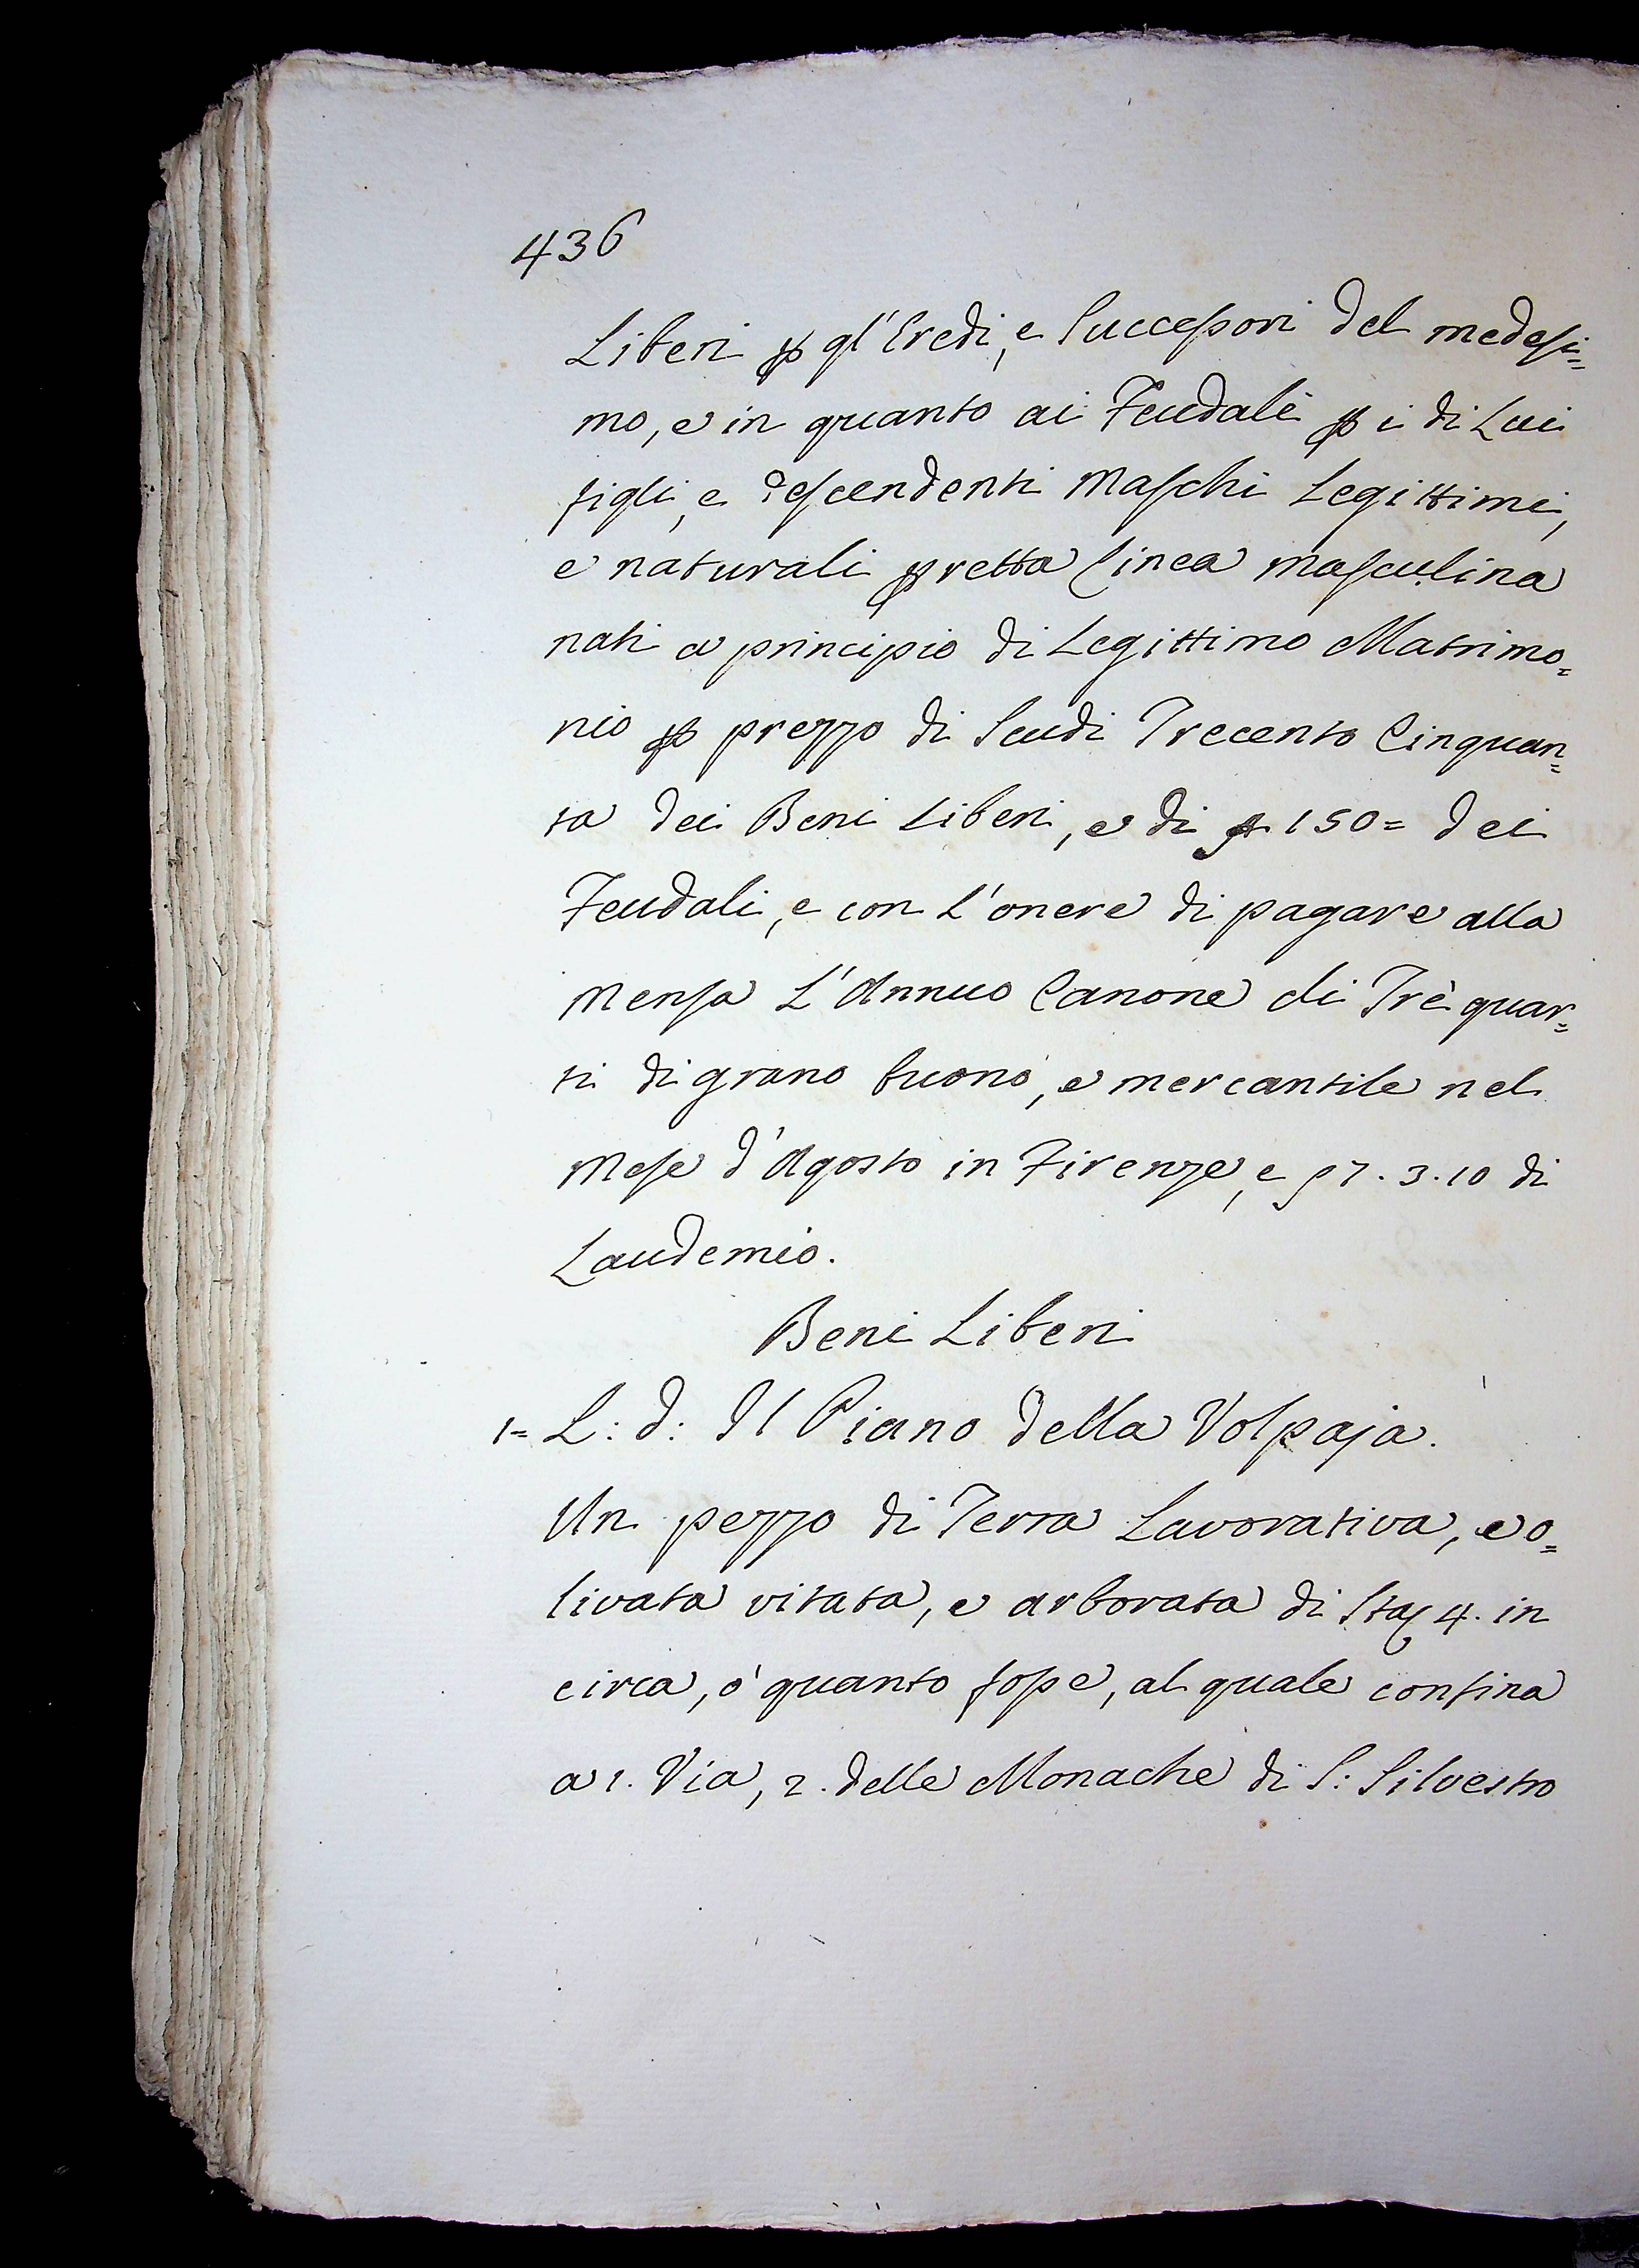 436
Liberi ꝑ gl'Eredi, e Successori del medesi=
mo, e in quanto ai Feudali ꝑ i di Lui
figli, e descendenti Maschi Legittimi,
e naturali ꝑ retta Linea Masculina
nati a principio di Legittimo Matrimo=
nio ꝑ prezzo di Scudi Trecento Cinquan=
ta dei Beni Liberi, e di 150= dei
Feudali, e con L'onere di pagare alla
Mensa L'Annuo Canone di Trè quar=
ti di grano buono, e mercantile nel
Mese d'Agosto in Firenze, e 7.3.10 di
Laudemio.
Beni Liberi
1= L: d: Il Piano della Volpaja.
Un pezzo di Terra Lavorativa, e o=
livata vitata, e arborata di Sta 4. in
circa, ò quanto fosse, al quale confina
a 1. Via, 2. delle Monache di S: Silvestro